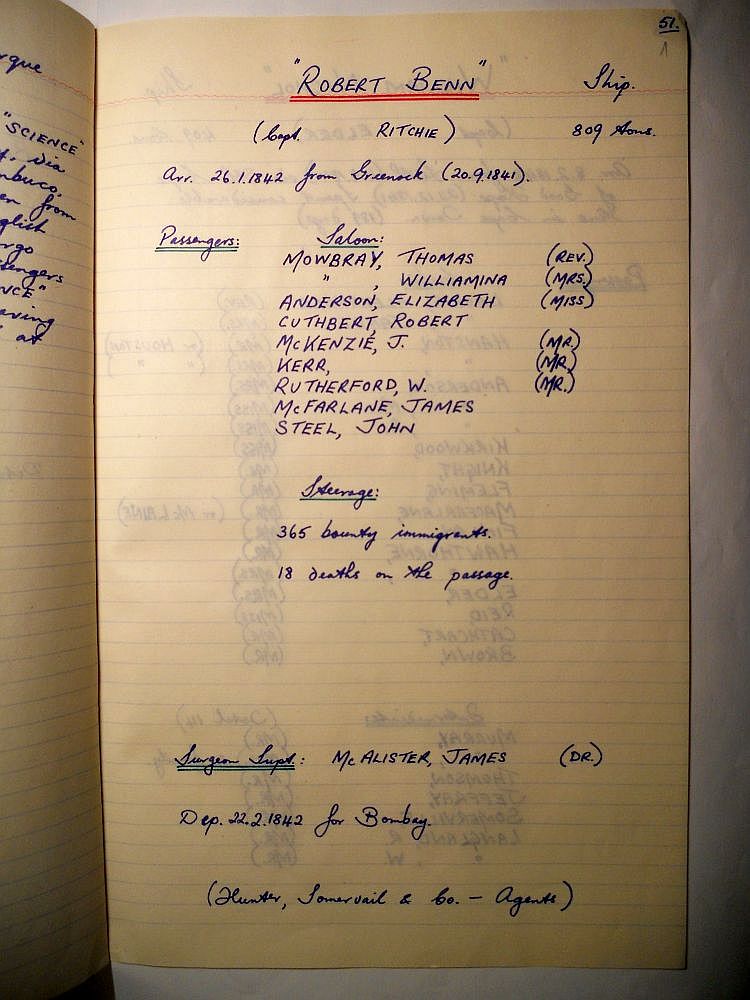 51.
1
"ROBERT BENN" Ship.
(Capt. RITCHIE) 809 tons.
Arr. 26.1.1842 from Greenock (20.9.1841).
Passengers: Saloon:
MOWBRAY, THOMAS (REV.)
" , WILLIAMINA (MRS.)
ANDERSON, ELIZABETH (MISS)
CUTHBERT, ROBERT
McKENZIE, J. (MR.)
KERR, (MR.)
RUTHERFORD, W. (MR.)
McFARLANE, JAMES
STEEL, JOHN
Steerage:
365 bounty immigrants.
18 deaths on the passage.
Surgeon Supt.: McALISTER, JAMES (DR.)
Dep. 22.2.1842 for Bombay.
(Hunter, Somervail & Co. - Agents)
"SCIENCE"
via
from
at